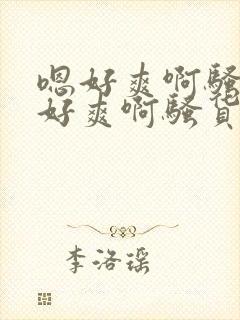 嗯好爽啊骚
好爽啊骚货
李洛瑶